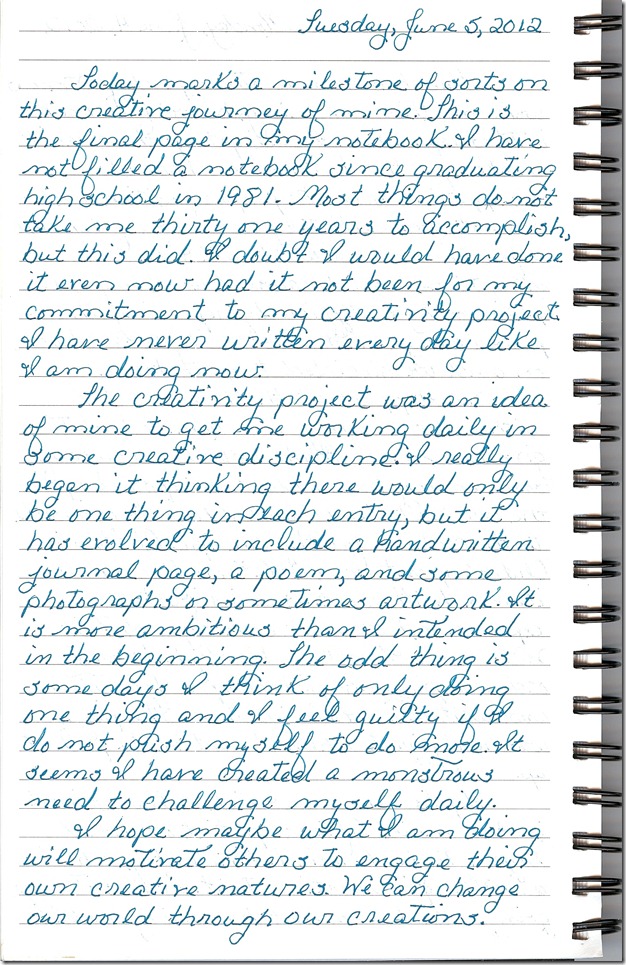 Tuesday, June 5, 2012
Today marks a milestone of sorts on
this creative journey of mine. This is
the final page in my notebook. I have
not filled a notebook since graduating
high school in 1981. Most things do not
take me thirty one years to accomplish,
but this did. I doubt I would have done
it even now had it not been for my
commitment to my creativity project.
I have never written every day like
I am doing now.
The creativity project was an idea
of mine to get me working daily in
some creative discipline. I really
began it thinking there would only
be one thing in each entry, but it
has evolved to include a handwritten
journal page, a poem, and some
photographs or sometimes artwork. It
is more ambitious than I intended
in the beginning. The odd thing is
some days I think of only doing
one thing and I feel guilty if I
do not push myself to do more. It
seems I have created a monstrous
need to challenge myself daily.
I hope maybe what I am doing
will motivate others to engage their
own creative natures. We can change
our world through our creations.